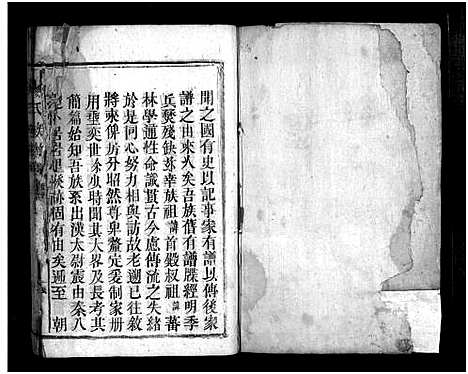 聞之國有史以記事家有譜以傳後家
譜之由來久矣吾族舊有譜牒經明季
兵燹殘缺茲幸族祖諱首毅叔祖諱蕃
林學通性命識貫古今慮傳流之失緒
於是同心努力相與訪故老遡已往敘
將來俾房分昭然尊卑釐定爰制家冊
用垂奕世余幼時聞其大畧及長考其
簡篇始知吾族系出漢太尉震由秦八
固有由矣逓至 朝